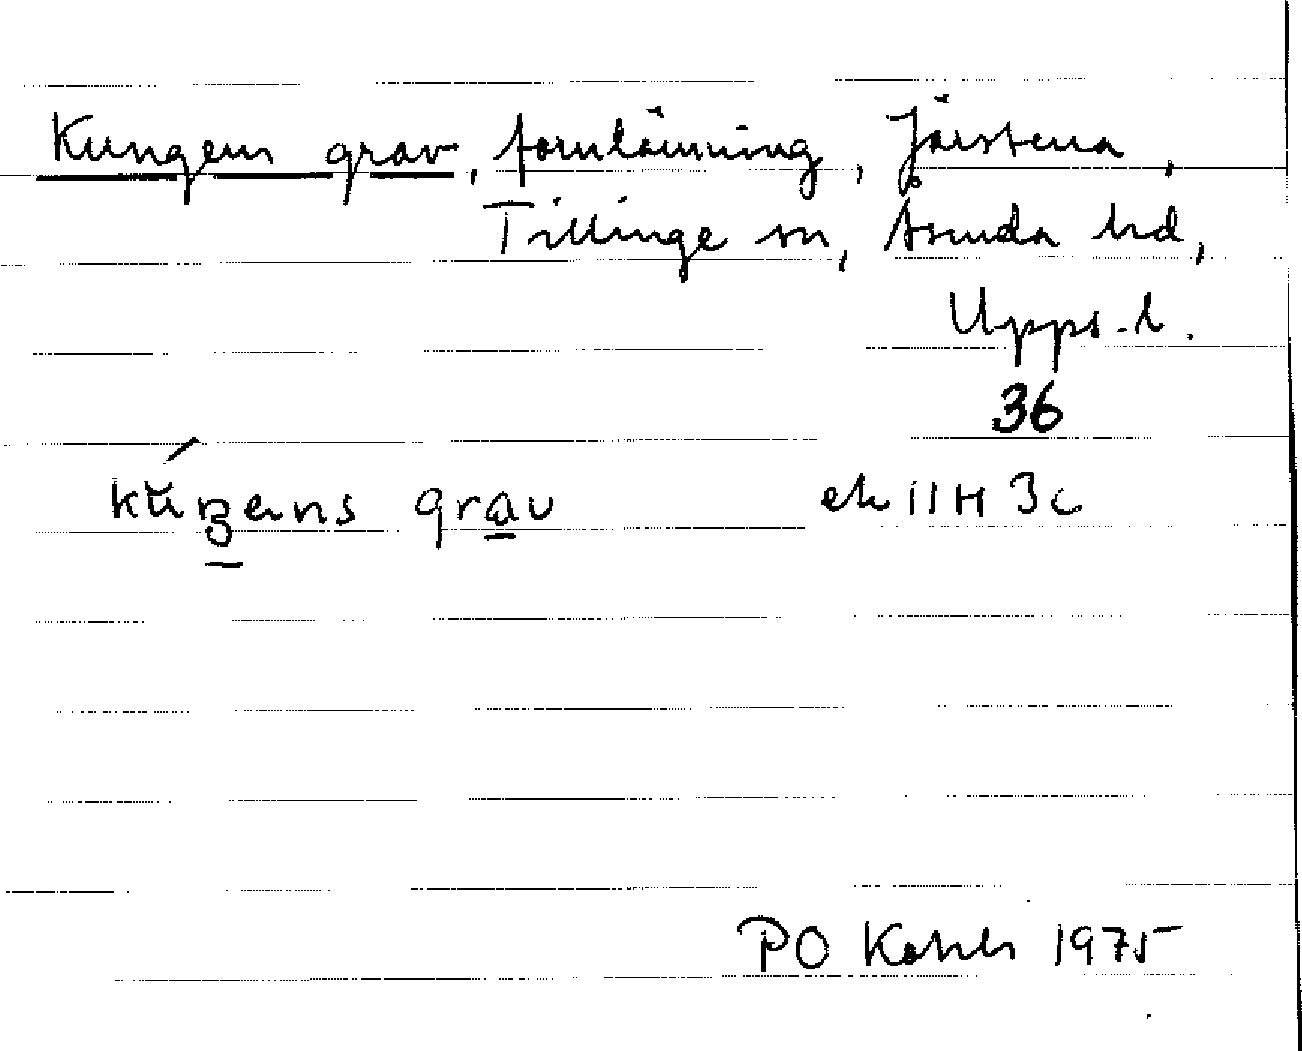 Kungens grav, fornlämning, Järstena,
Tillinge sn, Åsunda hd,
Upps.l.
36
grav ek 11H 3c
PO 1975